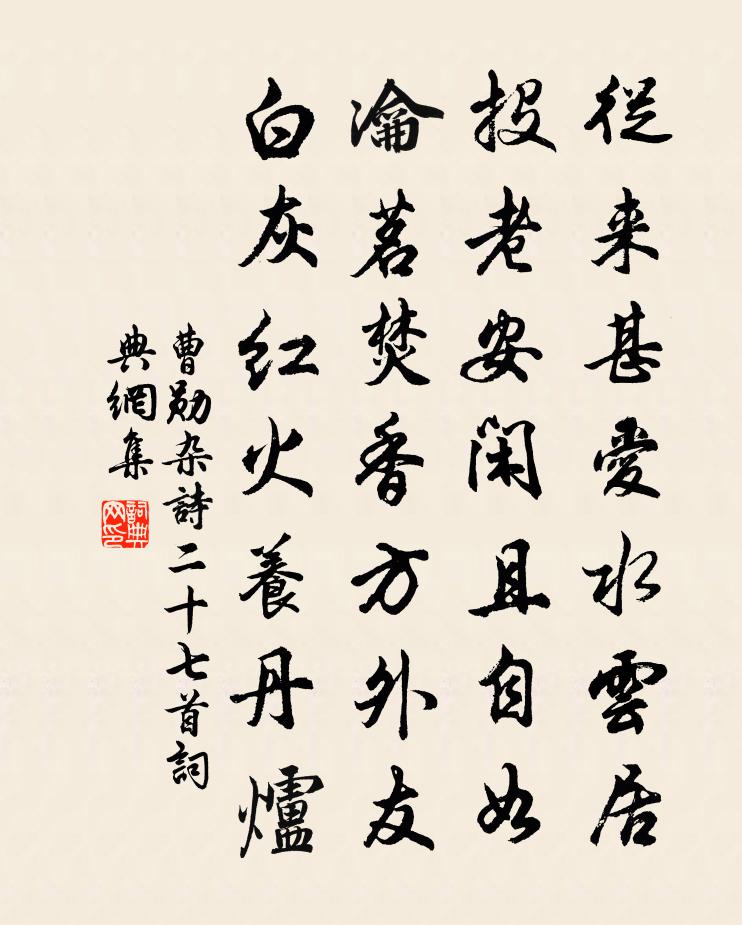 從来甚愛水雲居
投老安閑且自如
瀹茗焚香方外友
白灰紅火養丹爐
曹勛杂詩二十七首詞
典網集
詞典
网印